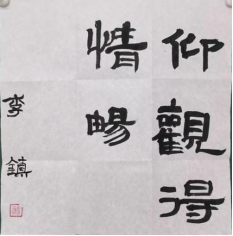 仰觀得
情暢
李鎮